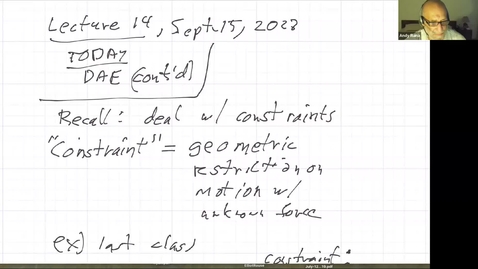 Lecture 14, Sept. 15, 2023
TODAY
DAE (cont'd)
Recall: deal w/ constraints
"Constraint" = geometric
restriction on
motion w/
unknown force
ex) last class
constraint: